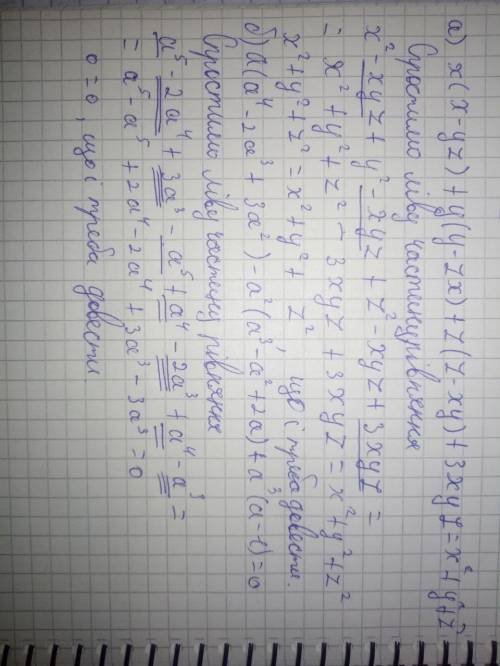 а) x(x-yz)+y(y-zx)+z(z-xy)+3xyz=x²+y²+z²
Спростимо ліву частину рівняння
x²-xyz+y²-xyz+z²-xyz+3xyz=
=x²+y²+z²-3xyz+3xyz=x²+y²+z²
x²+y²+z²=x²+y²+z², що і треба довести.
б) a(a⁴-2a³+3a²)-a²(a³-a²+2a)+a³(a-1)=0
Спростимо ліву частину рівняння
a⁵-2a⁴+3a³-a⁵+a⁴-2a³+a⁴-a³=
=a⁵-a⁵+2a⁴-2a⁴+3a³-3a³=0
0=0, що і треба довести.